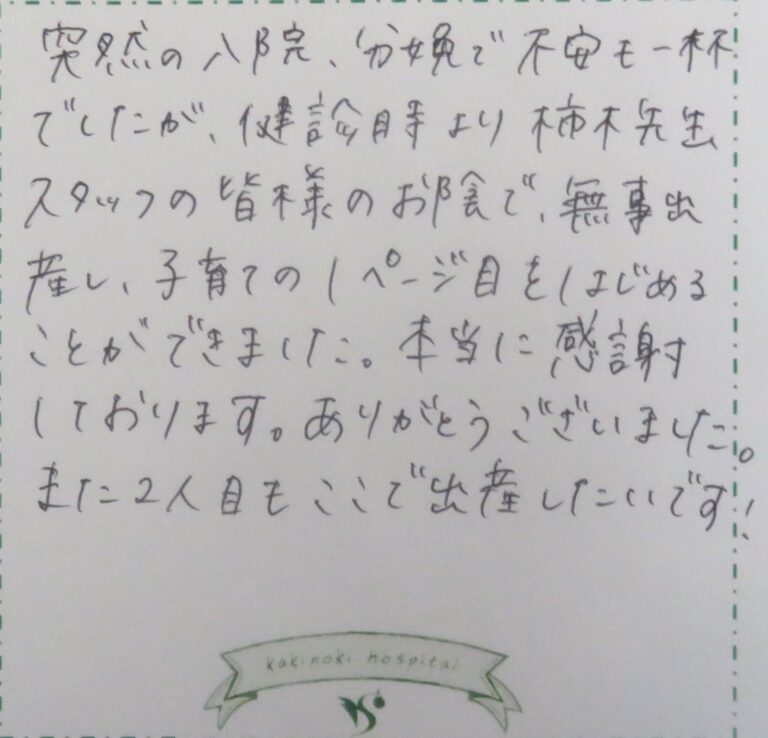 突然の入院、分娩で不安も一杯
でしたが、健診時より柿木先生
スタッフの皆様のお陰で、無事出
産し、子育ての1ページ目をはじめる
ことができました。本当に感謝
しております。ありがとうございました。
また2人目もここで出産したいです!
kakinoki hospital